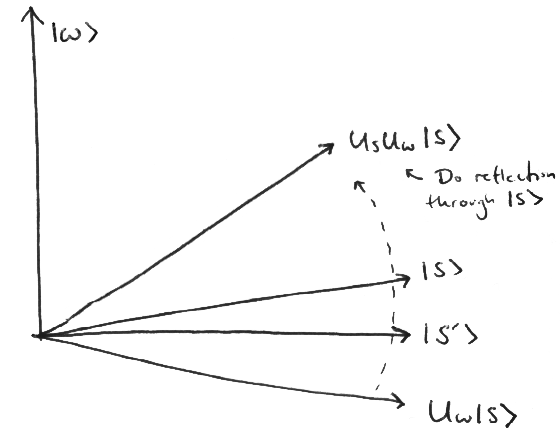 |ω⟩
UₛU_ω|S⟩
↖ Do reflection
through |S⟩
|S⟩
|S'⟩
U_ω|S⟩